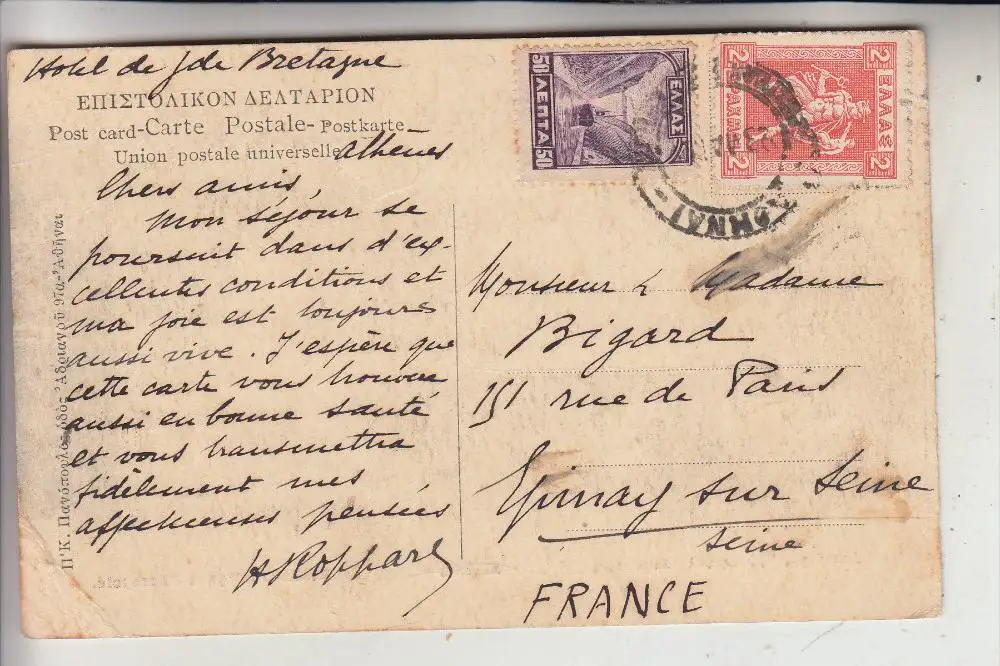 Hotel de Gde Bretagne
ΕΠΙΣΤΟΛΙΚΟΝ ΔΕΛΤΑΡΙΟΝ
Post card-Carte Postale-Postkarte
Union postale universelle
Athènes
Chers amis,
Mon séjour se
poursuit dans d'ex-
cellentes conditions et
ma joie est toujours
aussi vive. J'espère que
cette carte vous trouvera
aussi en bonne santé
et vous transmettra
fidèlement mes
affectueuses pensées
50 ΛΕΠΤΑ 50
ΕΛΛΑΣ
2 ΕΛΛΑΣ 2
2 ΔΡΑΧΜΑΙ 2
ΑΘΗΝΑΙ
Monsieur & Madame
Bigard
151 rue de Paris
Epinay sur Seine
Seine
FRANCE
Π'Κ. Πανόπουλος ὁδὸς Ἀδριανοῦ 97α-Ἀθῆναι